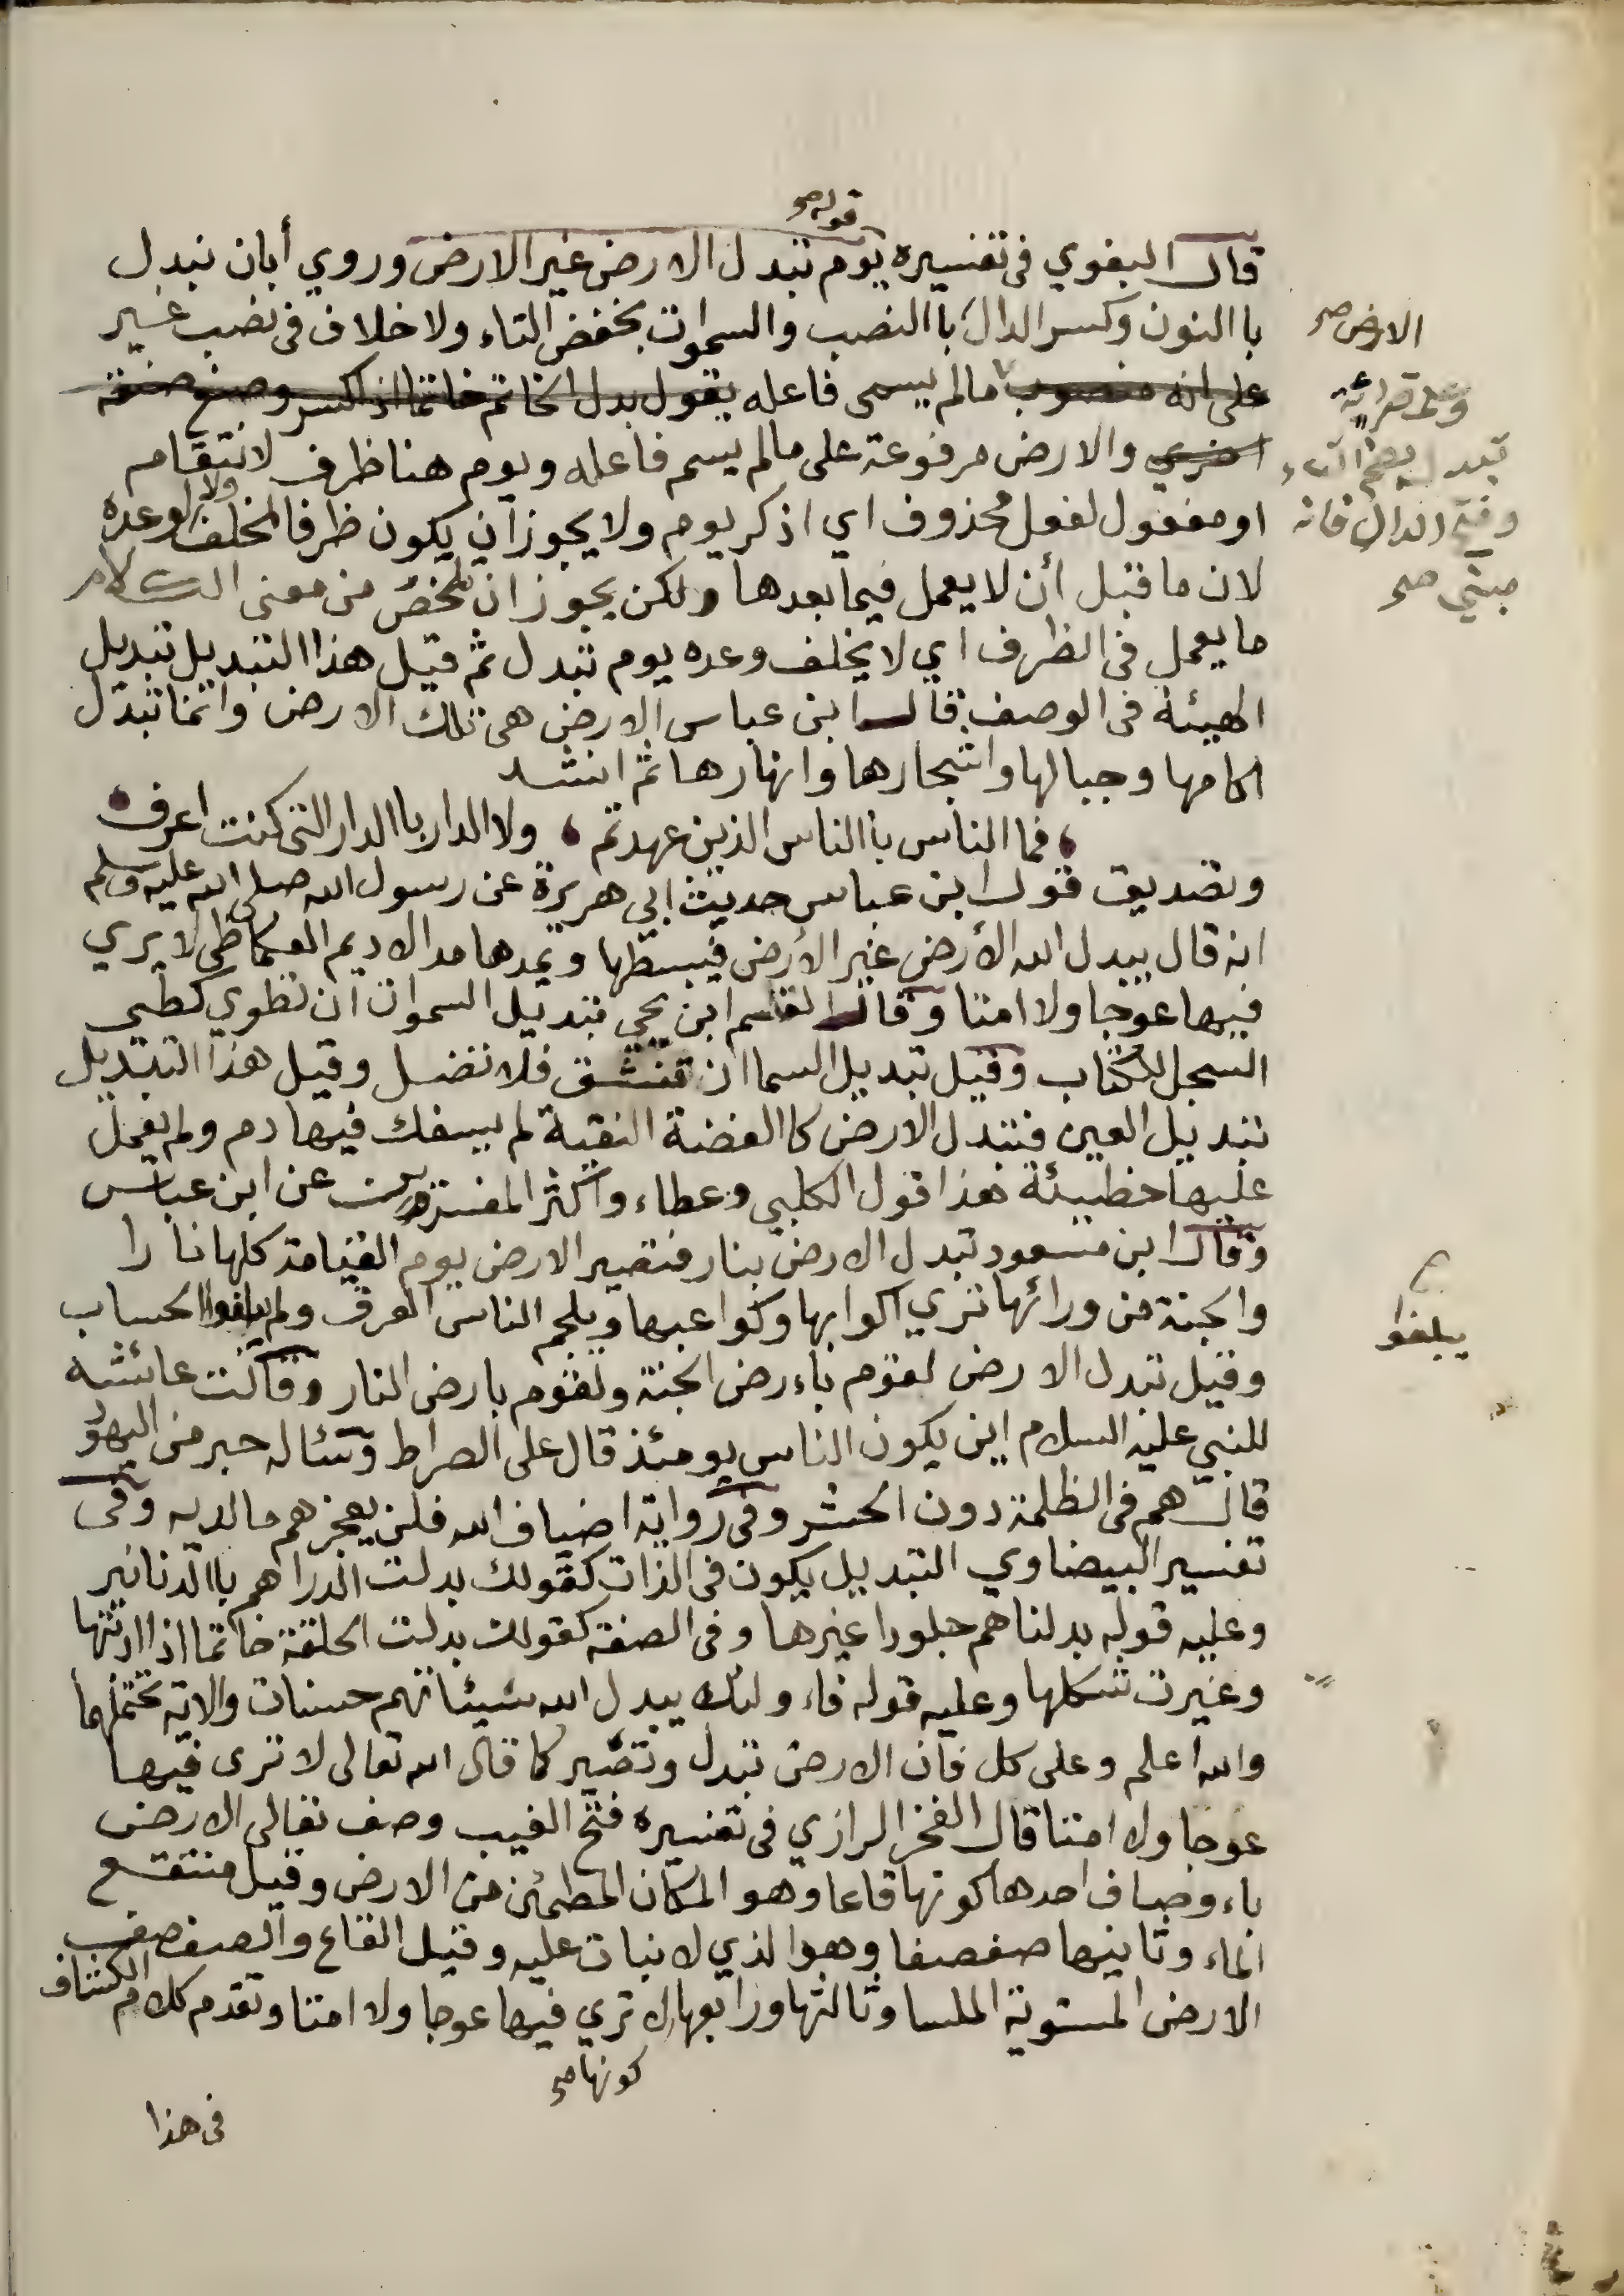 قوله صح
قال البغوي فى تفسيره يوم تبدل الارض غير الارض وروي أبان نبدل
باالنون وكسر الدال باالنصب والسموات بخفض التاء ولا خلاف فى نصب غير
الارض صح
على انه منصوب مالم يسمى فاعله يقول بدل الخاتم خاتما اذا كسر وصنع صنعة
وعلى قرائة
تبدل بضم التاء
وفتح الدال فانه
مبني صح
اخري والارض مرفوعة على مالم يسم فاعله ويوم هنا ظرف لانتقام
او مفعول لفعل محذوف اي اذكر يوم ولا يجوز ان يكون ظرفا لمخلف ولا لوعده
لان ما قبل أن لا يعمل فيما بعدها ولكن يجوز ان يلخص من معنى الكلام
ما يعمل فى الظرف اي لا يخلف وعده يوم تبدل ثم قيل هذا التبديل تبديل
الهيئة فى الوصف قال ابن عباس الارض هى تلك الارض وانما تبدل
اكامها وجبالها واشجارها وانهارها ثم انشد
فما الناس باالناس الذين عهدتم ولا الدار باالدار التى كنت اعرف
وتصديق قول ابن عباس حديث ابي هريرة عن رسول الله صلى الله عليه وسلم
انه قال يبدل الله الأرض غير الأرض فيبسطها ويمدها مد الاديم العكاظى لا يري
فيها عوجا ولا امتا وقال القاسم ابن يحي تبديل السموات ان تطوي كطى
السجل للكتاب وقيل تبديل السما ان تنشق فلا تضل وقيل هذا التبديل
تبديل العين فتبدل الارض كاالفضة النقية لم يسفك فيها دم ولم يعمل
عليها خطيئة هذا قول الكلبي وعطاء واكثر المفسرين عن ابن عباس
وقال ابن مسعود تبدل الارض بنار فتصير الارض يوم القيامة كلها نارا
والجنة من ورائها تري اكوابها وكواعبها ويلجم الناس العرق ولم يبلغوا الحساب
يبلغوا
وقيل تبدل الارض لقوم باءرض الجنة ولقوم بارض النار وقالت عائشه
للنبي عليه السلام اين يكون الناس يومئذ قال على الصراط وسئاله حبر من اليهود
قال هم فى الظلمة دون الحشر وفى رواية اضياف الله فلن يعجزهم مالديه وفى
تفسير البيضاوي التبديل يكون فى الذات كقولك بدلت الدراهم باالدنانير
وعليه قوله بدلناهم جلودا غيرها وفى الصفة كقولك بدلت الحلقة خاتما اذا اذبتها
وغيرت شكلها وعليه قوله فاءولئك يبدل الله سيئاتهم حسنات والاية تحتملهما
والله اعلم وعلى كل فان الارض تبدل وتصير كما قال الله تعالى لا ترى فيها
عوجا ولا امتا قال الفخر الرازي فى تفسيره فتح الغيب وصف تعالى الارض
باءوصاف احدها كونها قاعا وهو المكان المطمئن من الارض وقيل منتقع
الماء وثانيها صفصفا وهو الذي لا نبات عليه وقيل القاع والصفصف
الارض المستوية الملسا وثالثها ورابعها لا تري فيها عوجا ولا امتا وتقدم كلام الكشاف
كونها صح
فى هذا